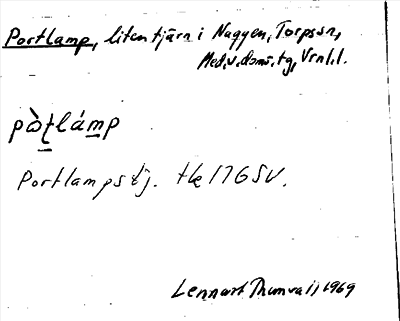 Portlamp, liten tjärn i Naggen, Torps sn,
Med.v.doms.tg, Vrnl.l.
pòṭlám̱p
Portlampstj. tlę 17G SV.
Lennart Thunvall 1969